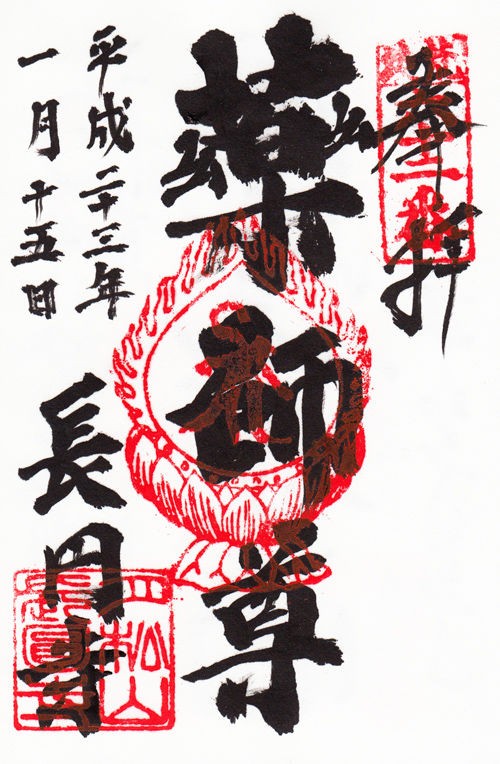 奉拝
薬師尊
平成二十三年
一月十五日
長円寺